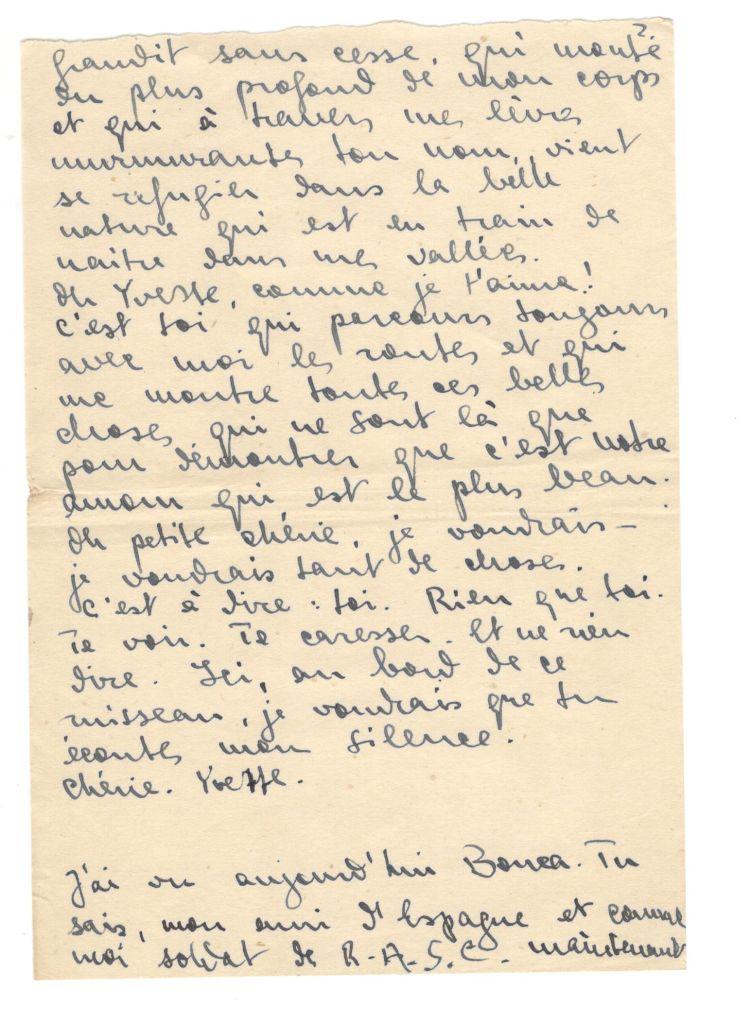 2
grandit sans cesse, qui monte
du plus profond de mon corps
et qui à travers mes lèvres
murmurantes ton nom, vient
se refugier dans la belle
nature qui est en train de
naitre dans mes vallées.
Oh Yvette, comme je t'aime!
C'est toi qui parcours toujours
avec moi les routes et qui
me montre toutes ces belles
choses, qui ne sont là que
pour démontrer que c'est notre
amour qui est le plus beau.
Oh petite chérie, je voudrais –
je voudrais tant de choses.
C'est à dire: toi. Rien que toi.
Te voir. Te caresser. Et ne rien
dire. Ici, au bord de ce
ruisseau, je voudrais que tu
écoutes mon silence.
Chérie. Yvette.
J'ai vu aujourd'hui. Tu
sais, mon ami d'Espagne et comme
moi soldat de R.A.S.C. maintenant